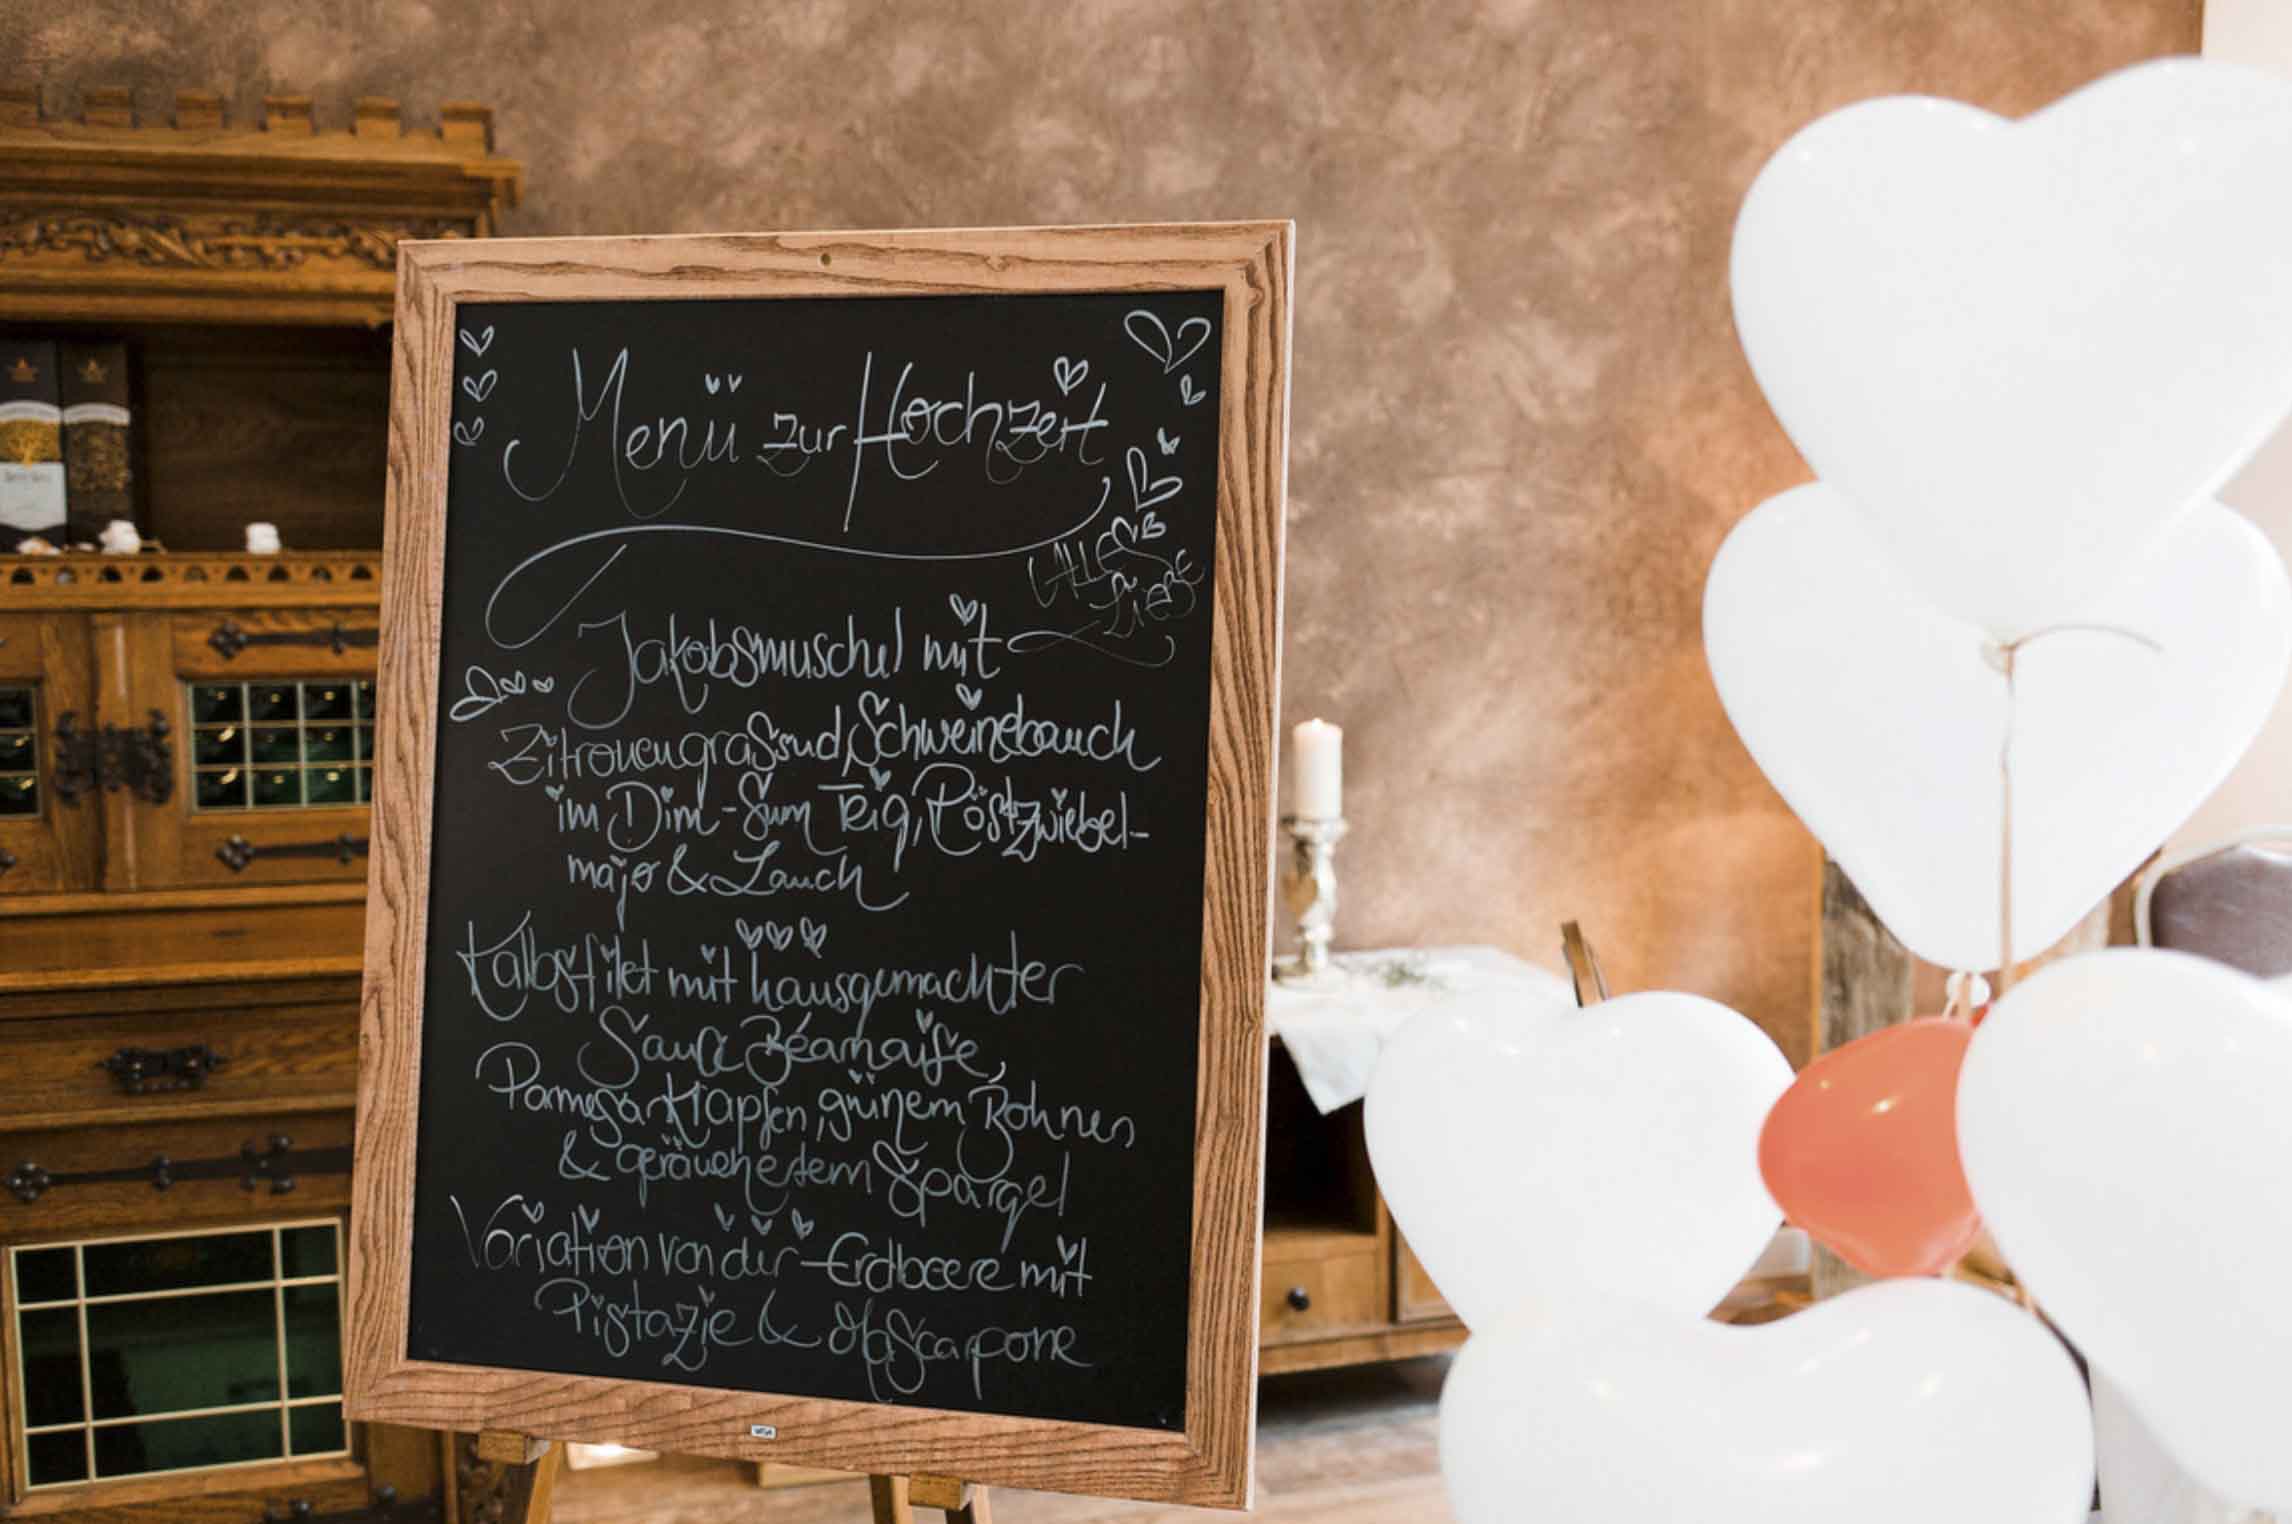 Menü zur Hochzeit
ALLES
LiEBE
Jakobsmuschel mit
Zitronengrassud, Schweinebauch
im Dim-Sum Teig, Röstzwiebel-
majo & Lauch
Kalbsfilet mit hausgemachter
Sauce Béarnaise,
Parmesan Krapfen, grünem Bohnen
& geräuchertem Spargel
Variation von der Erdbeere mit
Pistazie & Mascarpone